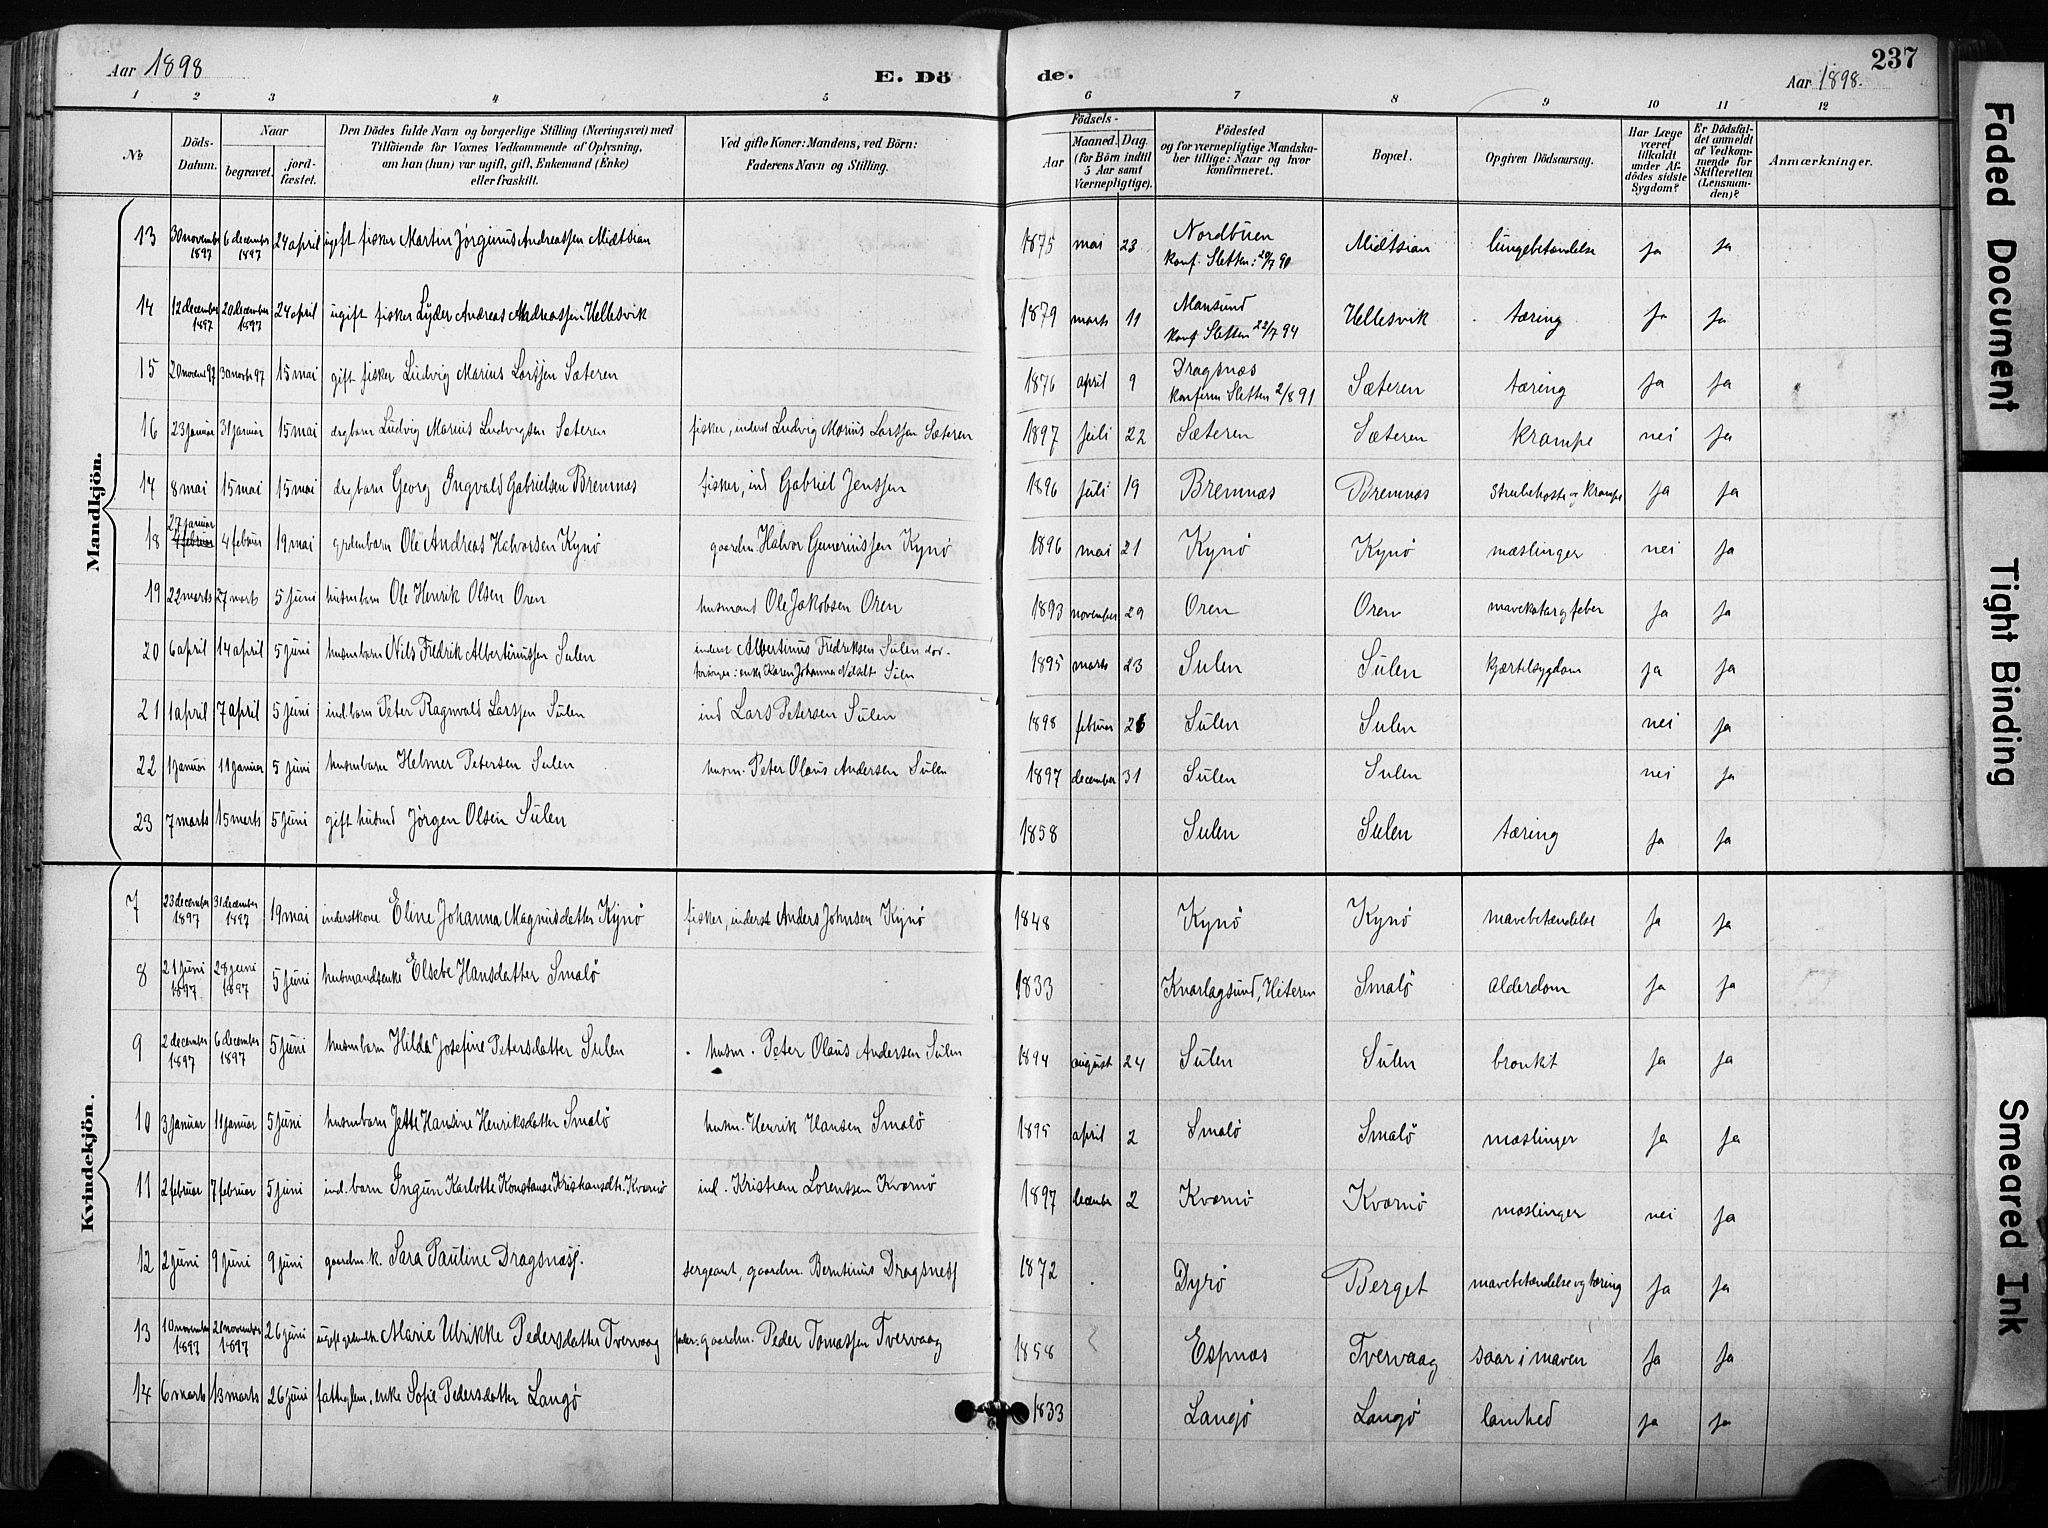 Aar 1898
E. Dö
de.
237
Aar 1898.
1 2 3 4 5 6 7 8 9 10 11 12
No
Döds-Datum.
Naar
begravet.
jord-fæstet.
Den Dödes fulde Navn og borgerlige Stilling (Næringsvei) med
Tilföiende for Voxnes Vedkommende af Oplysning,
om han (hun) var ugift, gift, Enkemand (Enke)
eller fraskilt.
Ved gifte Koner: Mandens, ved Börn:
Faderens Navn og Stilling.
Födsels-
Aar
Maaned. Dag.
(for Börn indtil
5 Aar samt
Værnepligtige).
Födested
og for værnepligtige Mandska-
ber tillige: Naar og hvor
konfirmeret.
Bopæl.
Opgiven Dödsaarsag.
Har Læge
været
tilkaldt
under Af-
dödes sidste
Sygdom?
Er Dödsfal-
det anmeldt
af Vedkom-
mende for
Skifteretten
(Lensman-
den)?
Anmærkninger.
Mandkjön.
13 30 november 1897 6 december 1897 24 april ugift fisker Martin Jørginus Andreassen Midtsian 1875 mai 23 Nordbuen konf. Sletten: 20/7 90 Midtsian lungebetændelse ja ja
14 12 december 1897 20 december 1897 24 april ugift fisker Lyder Andreas Andreassen Hellesvik 1879 marts 11 Mausund konf Sletten 22/7 94 Hellesvik tæring ja ja
15 20 novem 97 30 97 15 mai gift fisker Ludvig Marius Larssen Sæteren 1876 april 9 Dragsnæs konfirm Sletten 2/8 91 Sæteren tæring ja ja
16 23 januar 31 januar 15 mai drgbarn Ludvig Marius Ludvigsen Sæteren fisker, inderst Ludvig Marius Larssen Sæteren 1897 juli 22 Sæteren Sæteren krampe nei ja
17 8 mai 15 mai 15 mai drgbarn Georg Ingvald Gabrielsen Bremnæs fisker, ind Gabriel Jenssen 1896 juli 19 Bremnæs Bremnæs strubehoste og krampe ja ja
18 27 januar 4 februar 4 februar 19 mai grdmbarn Ole Andreas Halvorsen Kynö gaardm Halvor Gunerinssen Kynö 1896 mai 21 Kynö Kynö mæslinger nei ja
19 22 marts 27 marts 5 juni husmbarn Ole Henrik Olsen Oren husmand Ole Jakobsen Oren 1893 november 29 Oren Oren mavekatar og feber ja ja
20 6 april 14 april 5 juni husmbarn Nils Fredrik Albertinussen Sulen inderst Albertinus Fredriksen Sulen
forsørger: enke Karen Johanna Nilsdt Sulen 1895 marts 23 Sulen Sulen kjertelsygdom ja ja
21 1 april 7 april 5 juni ind.barn Peter Ragnvald Larssen Sulen ind Lars Petersen Sulen 1898 februar 26 Sulen Sulen nei ja
22 1 januar 11 januar 5 juni husmbarn Helmer Petersen Sulen husm. Peter Olaus Andersen Sulen 1897 december 31 Sulen Sulen nei ja
23 7 marts 15 marts 5 juni gift husmd Jørgen Olsen Sulen 1858 Sulen Sulen tæring ja ja
Kvindekjön.
7 23 december 1897 31 december 1897 19 mai inderstkone Eline Johanna Magnusdatter Kynö fisker, inderst Anders Johnsen Kynö 1848 Kynö Kynö mavebetændelse ja ja
8 21 juni 1897 28 juni 1897 5 juni husmandsenke Elsebe Hansdatter Smalö 1833 Knarlagsund, Hiteren Smalö alderdom ja ja
9 2 december 1897 6 december 1897 5 juni husmbarn Hilda Josefine Petersdatter Sulen husm. Peter Olaus Andersen Sulen 1894 august 24 Sulen Sulen bronkit ja ja
10 3 januar 11 januar 5 juni husmbarn Jette Hansine Henriksdatter Smalö husm. Henrik Hansen Smalö 1895 april 2 Smalö Smalö mæslinger ja ja
11 2 februar 7 februar 5 juni ind.barn Ingun Karlotte Konstanse Kristiansdtr. Kvernö ind. Kristian Lorentsen Kvernö 1897 december 2 Kvernö Kvernö mæslinger nei ja
12 2 juni 9 juni 9 juni gaardm.k. Sara Pauline Dragsnæs. sergeant, gaardm. Berntinus Dragsnes 1872 Dyrö Berget mavebetændelse og tæring ja ja
13 10 november 1897 21 november 1897 26 juni Marie Ulrikke Pedersdatter Tvervaag fader: gaardm. Peder Tomassen Tvervaag 1858 Espnæs Tvervaag saar i maven ja ja
14 6 marts 13 marts 26 juni fattiglem, enke Sofie Pedersdatter Langö 1833 Langö Langö lamhed ja ja
Faded Document
Tight Binding
Smeared Ink